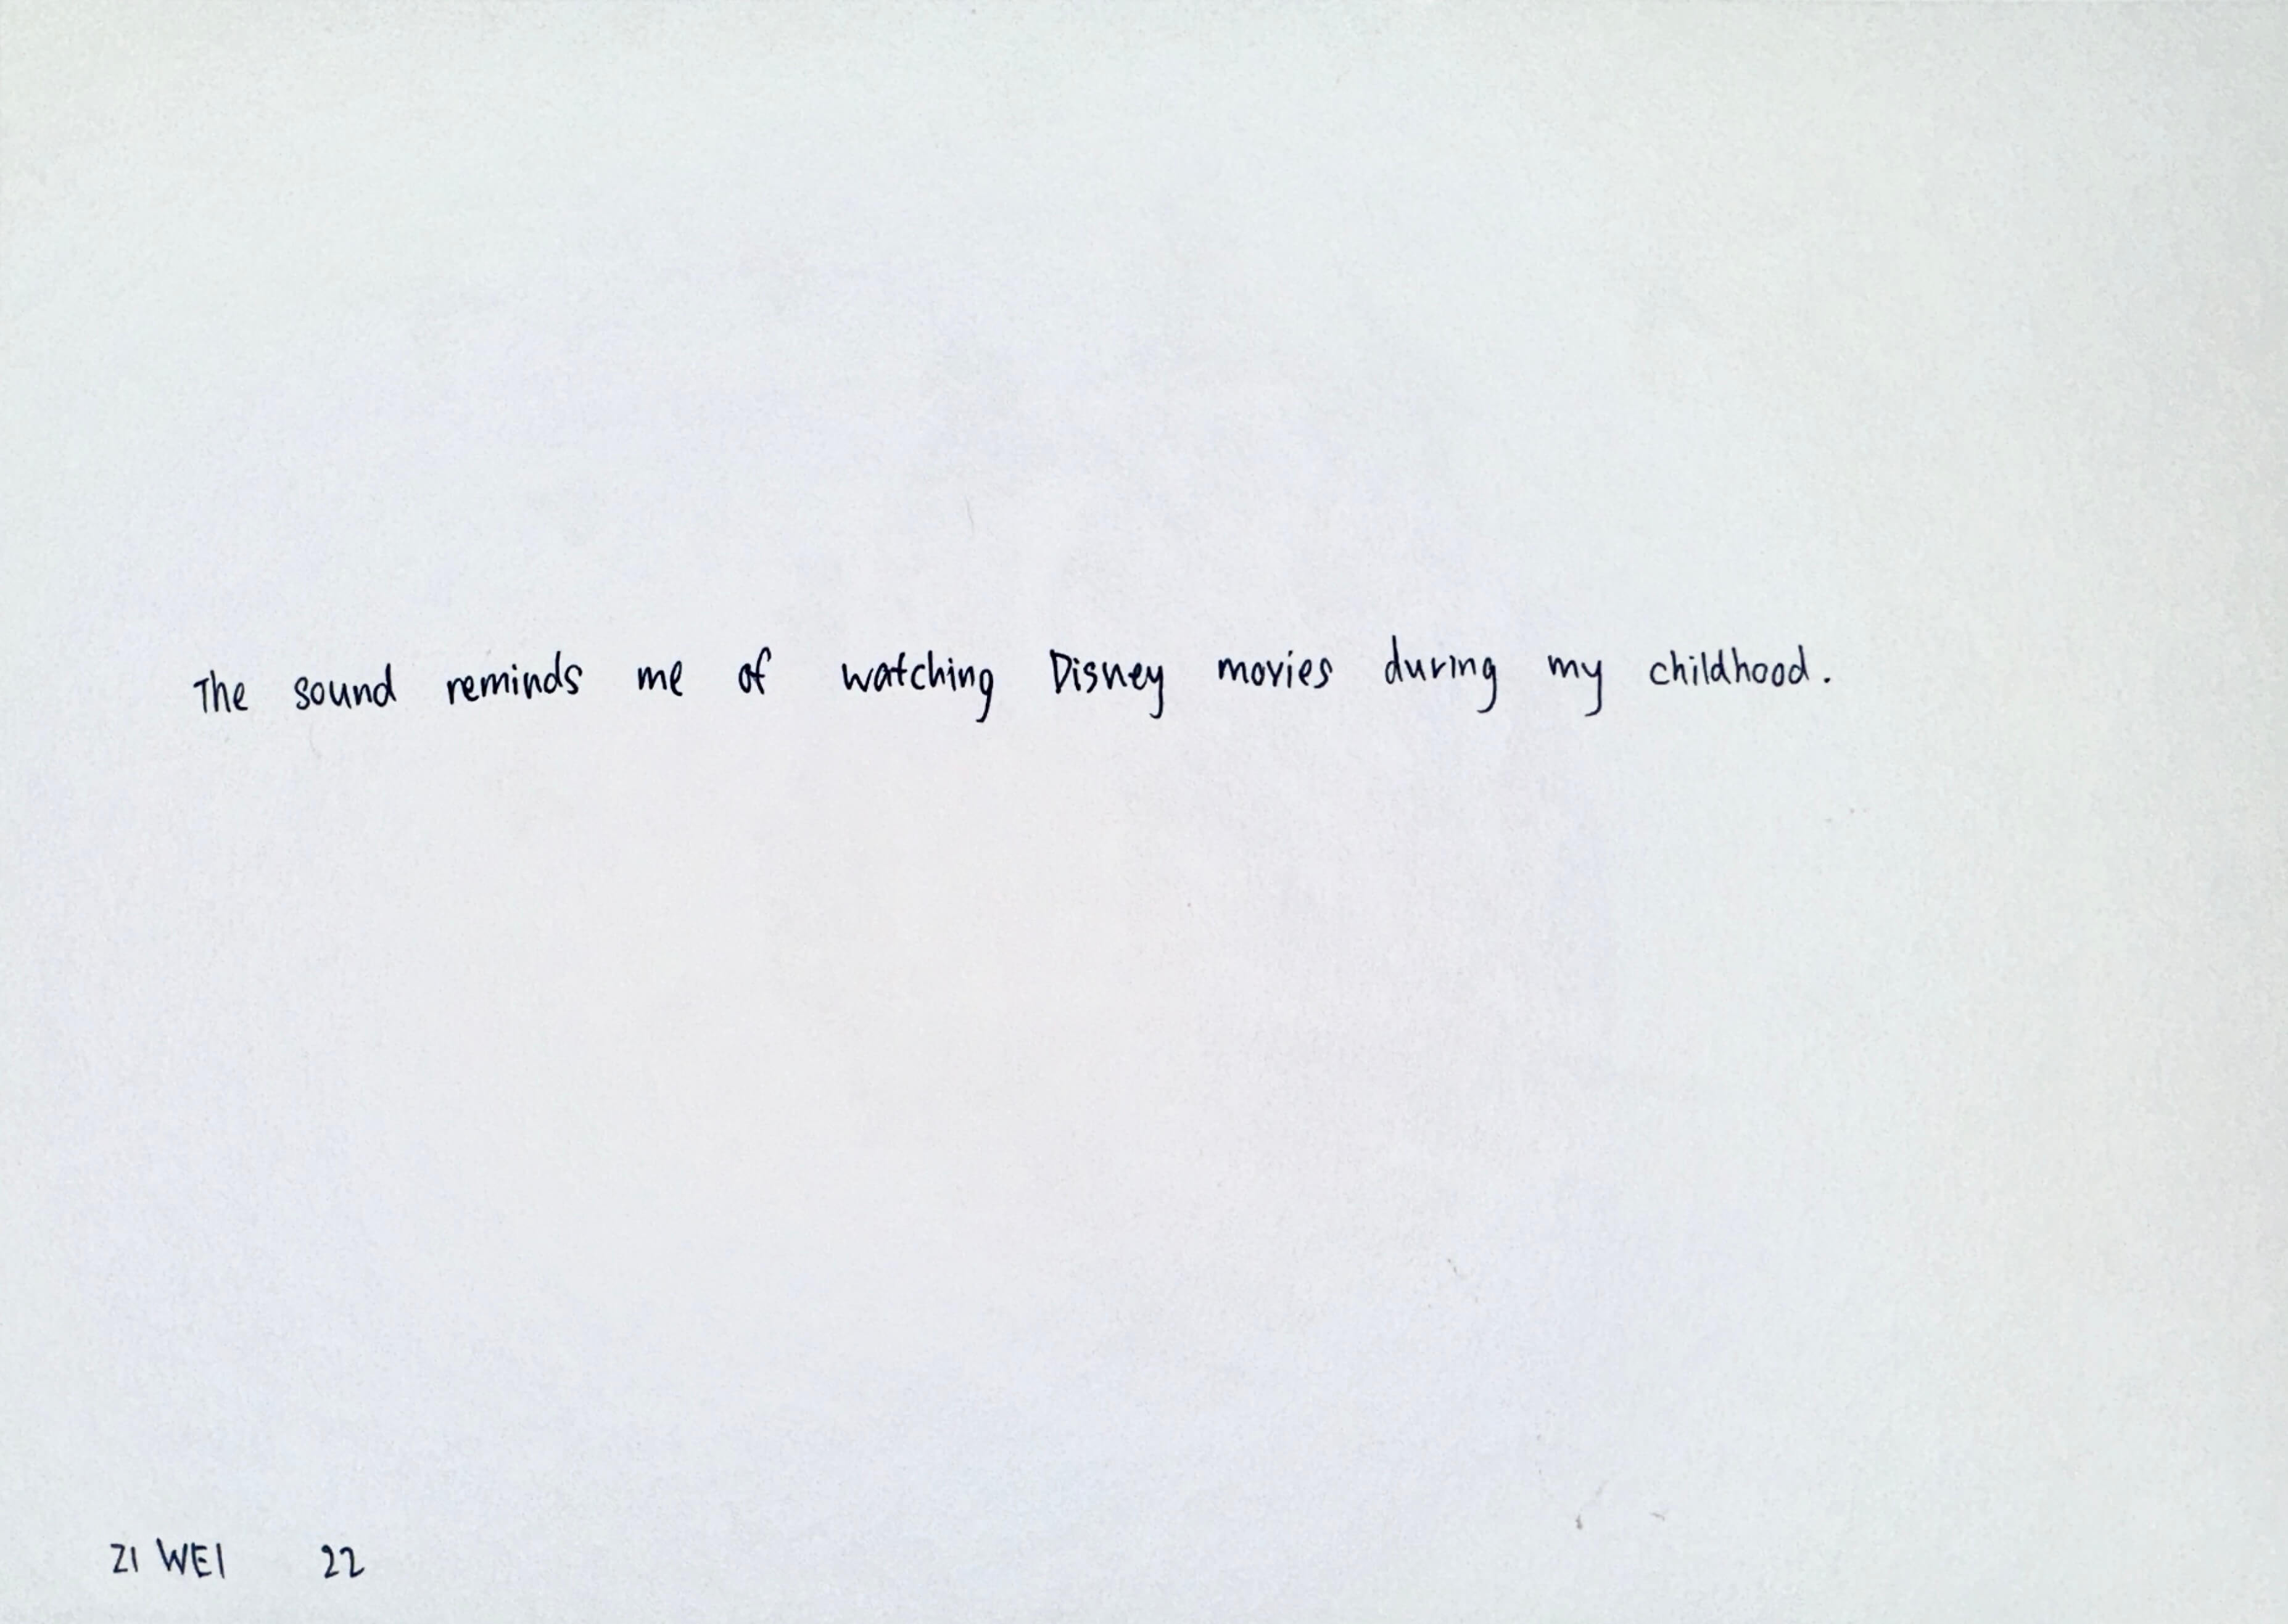 The sound reminds me of watching Disney movies during my childhood.
ZI WEI 22